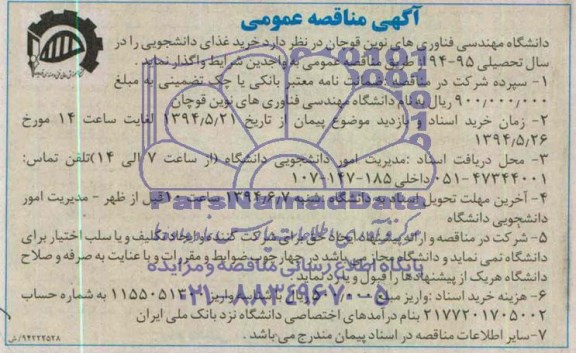 آگهی مناقصه عمومی
دانشگاه مهندسی فناوری های نوین قوچان در نظر دارد خرید غذای دانشجویی را در
سال تحصیلی ۹۵-۹۴ از طریق مناقصه عمومی به واجدین شرایط واگذار نماید.
۱- سپرده شرکت در مناقصه: ضمانت نامه معتبر بانکی یا چک تضمینی به مبلغ
۹۰۰/۰۰۰/۰۰۰ ریال به نام دانشگاه مهندسی فناوری های نوین قوچان
۲- زمان خرید اسناد و بازدید موضوع پیمان از تاریخ ۱۳۹۴/۵/۲۱ لغایت ساعت ۱۴ مورخ
۱۳۹۴/۵/۲۶
۳- محل دریافت اسناد: مدیریت امور دانشجویی دانشگاه (از ساعت ۷ الی ۱۴) تلفن تماس:
۰۵۱-۴۷۳۴۴۰۰۱ داخلی ۱۸۵-۱۴۷-۱۰۷
۴- آخرین مهلت تحویل اسناد به دانشگاه: شنبه ۱۳۹۴/۶/۷ ساعت ۱۰ قبل از ظهر - مدیریت امور
دانشجویی دانشگاه
۵- شرکت در مناقصه و ارائه پیشنهاد ایجاد حق برای شرکت کننده و ایجاد تکلیف و یا سلب اختیار برای
دانشگاه نمی نماید و دانشگاه مجاز می باشد در چهارچوب ضوابط و مقررات و با عنایت به صرفه و صلاح
دانشگاه هریک از پیشنهادها را قبول و یا رد نماید
۶- هزینه خرید اسناد: واریز مبلغ ریال با شناسه واریز به شماره حساب
۲۱۷۷۲۰۱۷۰۵۰۰۲ بنام درآمدهای اختصاصی دانشگاه نزد بانک ملی ایران
۷- سایر اطلاعات مناقصه در اسناد پیمان مندرج می باشد.
۹۴۲۲۴۵۲۸/ش
ParsNamadData
پایگاه اطلاع رسانی مناقصه و مزایده
۰۲۱-۸۸۳۴۹۶۷۰-۵